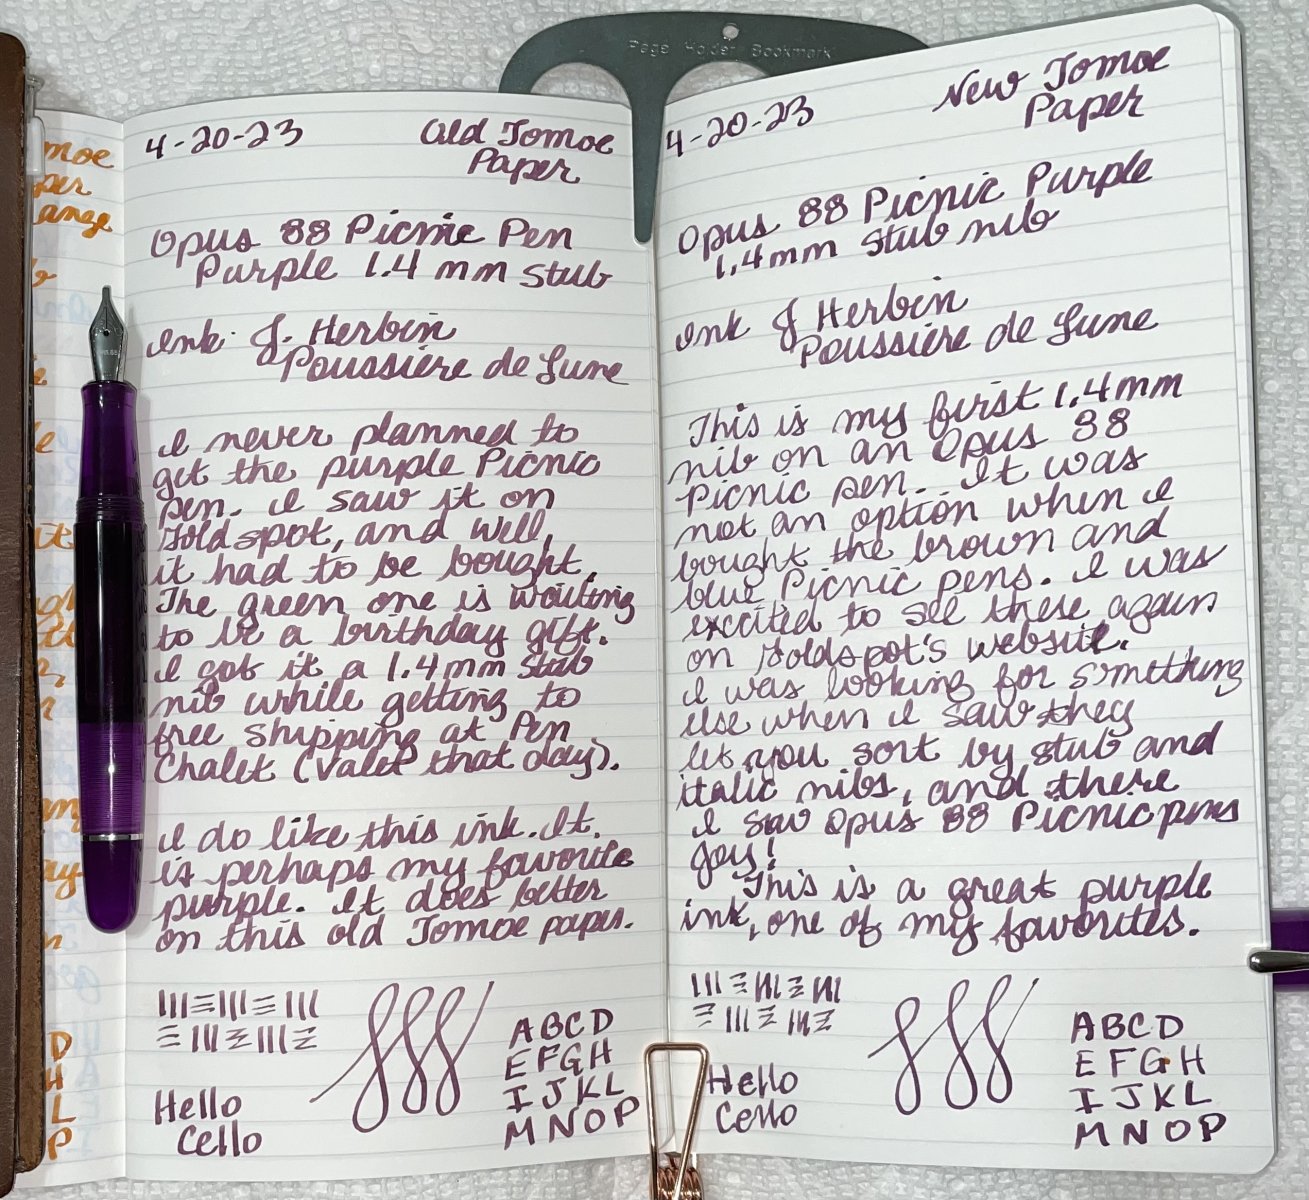 Page Holder Bookmark
moe
per
ange
4-20-23
Old Tomoe
Paper
Opus 88 Picnic Pen
Purple 1.4 mm stub
Ink: J. Herbin
Poussière de Lune
I never planned to
get the purple Picnic
pen. I saw it on
Goldspot, and well,
it had to be bought.
The green one is waiting
to be a birthday gift.
I got it a 1.4mm stub
nib while getting to
free shipping at Pen
Chalet (Valet that day).
I do like this ink. It
is perhaps my favorite
purple. It does better
on this old Tomoe paper.
Hello
Cello
A B C D
E F G H
I J K L
M N O P
D
H
L
P
4-20-23
New Tomoe
Paper
Opus 88 Picnic Purple
1.4mm stub nib
Ink J Herbin
Poussière de Lune
This is my first 1.4mm
nib on an Opus 88
Picnic pen. It was
not an option when I
bought the brown and
blue Picnic pens. I was
excited to see these again
on Goldspot's website.
I was looking for something
else when I saw they
let you sort by stub and
italic nibs, and there
I saw Opus 88 Picnic pens
Joy!
This is a great purple
ink, one of my favorites.
Hello
Cello
A B C D
E F G H
I J K L
M N O P